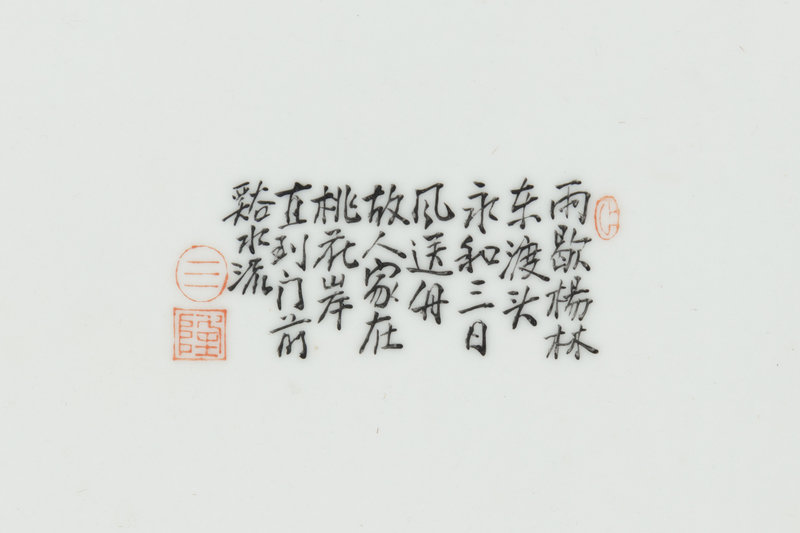 雨歇楊林
东渡头
永和三日
风送舟
故人家在
桃花岸
直到门前
谿水流
三